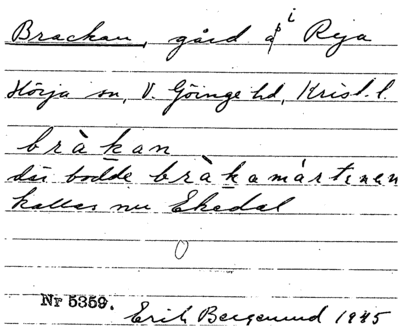 Brackan, gård i Reja
Hörja sn, V. Göinge hd, Krist. l.
bràkan
där bodde bràkamårtenen
kallas nu Ekedal
Nr 5359. Erik Berglund 1925